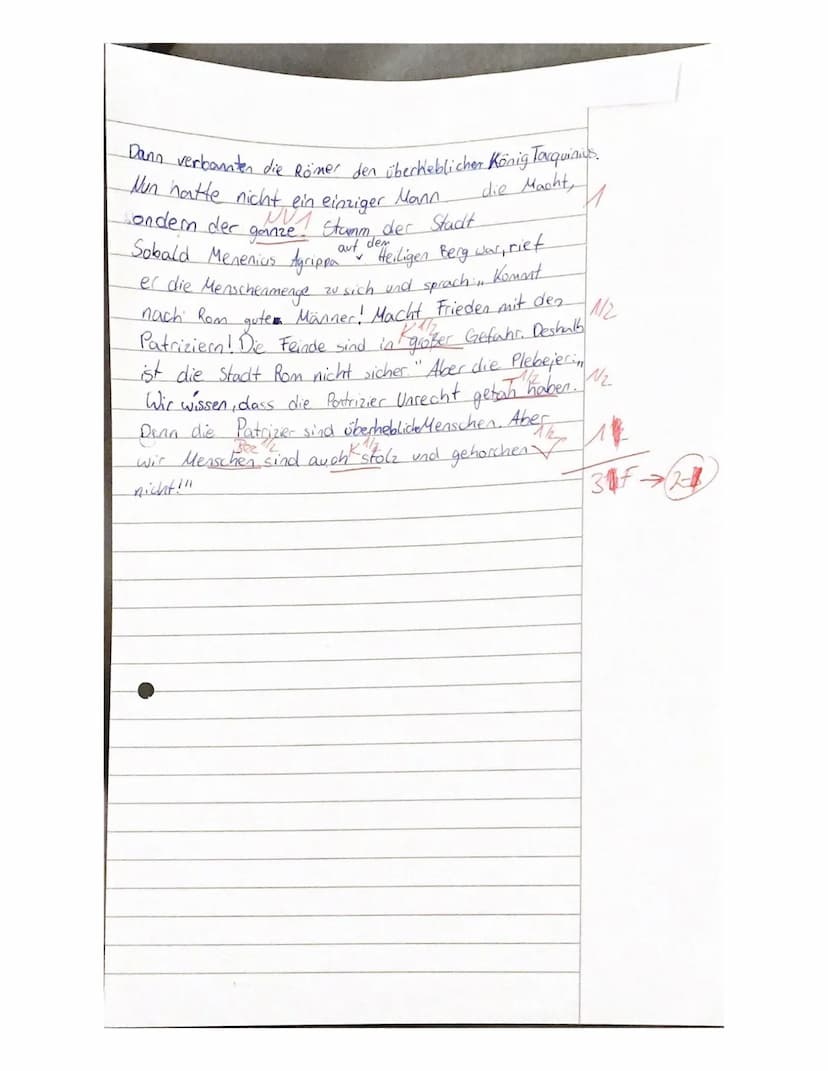 Dann verbannten die Römer den überheblichen König Tarquinius.
Nun hatte nicht ein einziger Mann die Macht, 1
NV1
sondern der ganze! Stamm der Stadt
auf dem
Sobald Menenius Agrippa Heiligen Berg war, rief
er die Menschenmenge zu sich und sprach: „Kommt
nach Rom gute Männer! Macht Frieden mit den 1/2
K 1/2
Patriziern! Die Feinde sind in großer Gefahr. Deshalb
ist die Stadt Rom nicht sicher." Aber die Plebejer: „
T 1/2
Wir wissen, dass die Patrizier Unrecht getan haben. 1/2
Denn die Patrizier sind überhebliche Menschen. Aber 1
Bez 1/2 K 1/2 1/2
wir Menschen sind auch stolz und gehorchen √
nicht!"
3 F → 2-